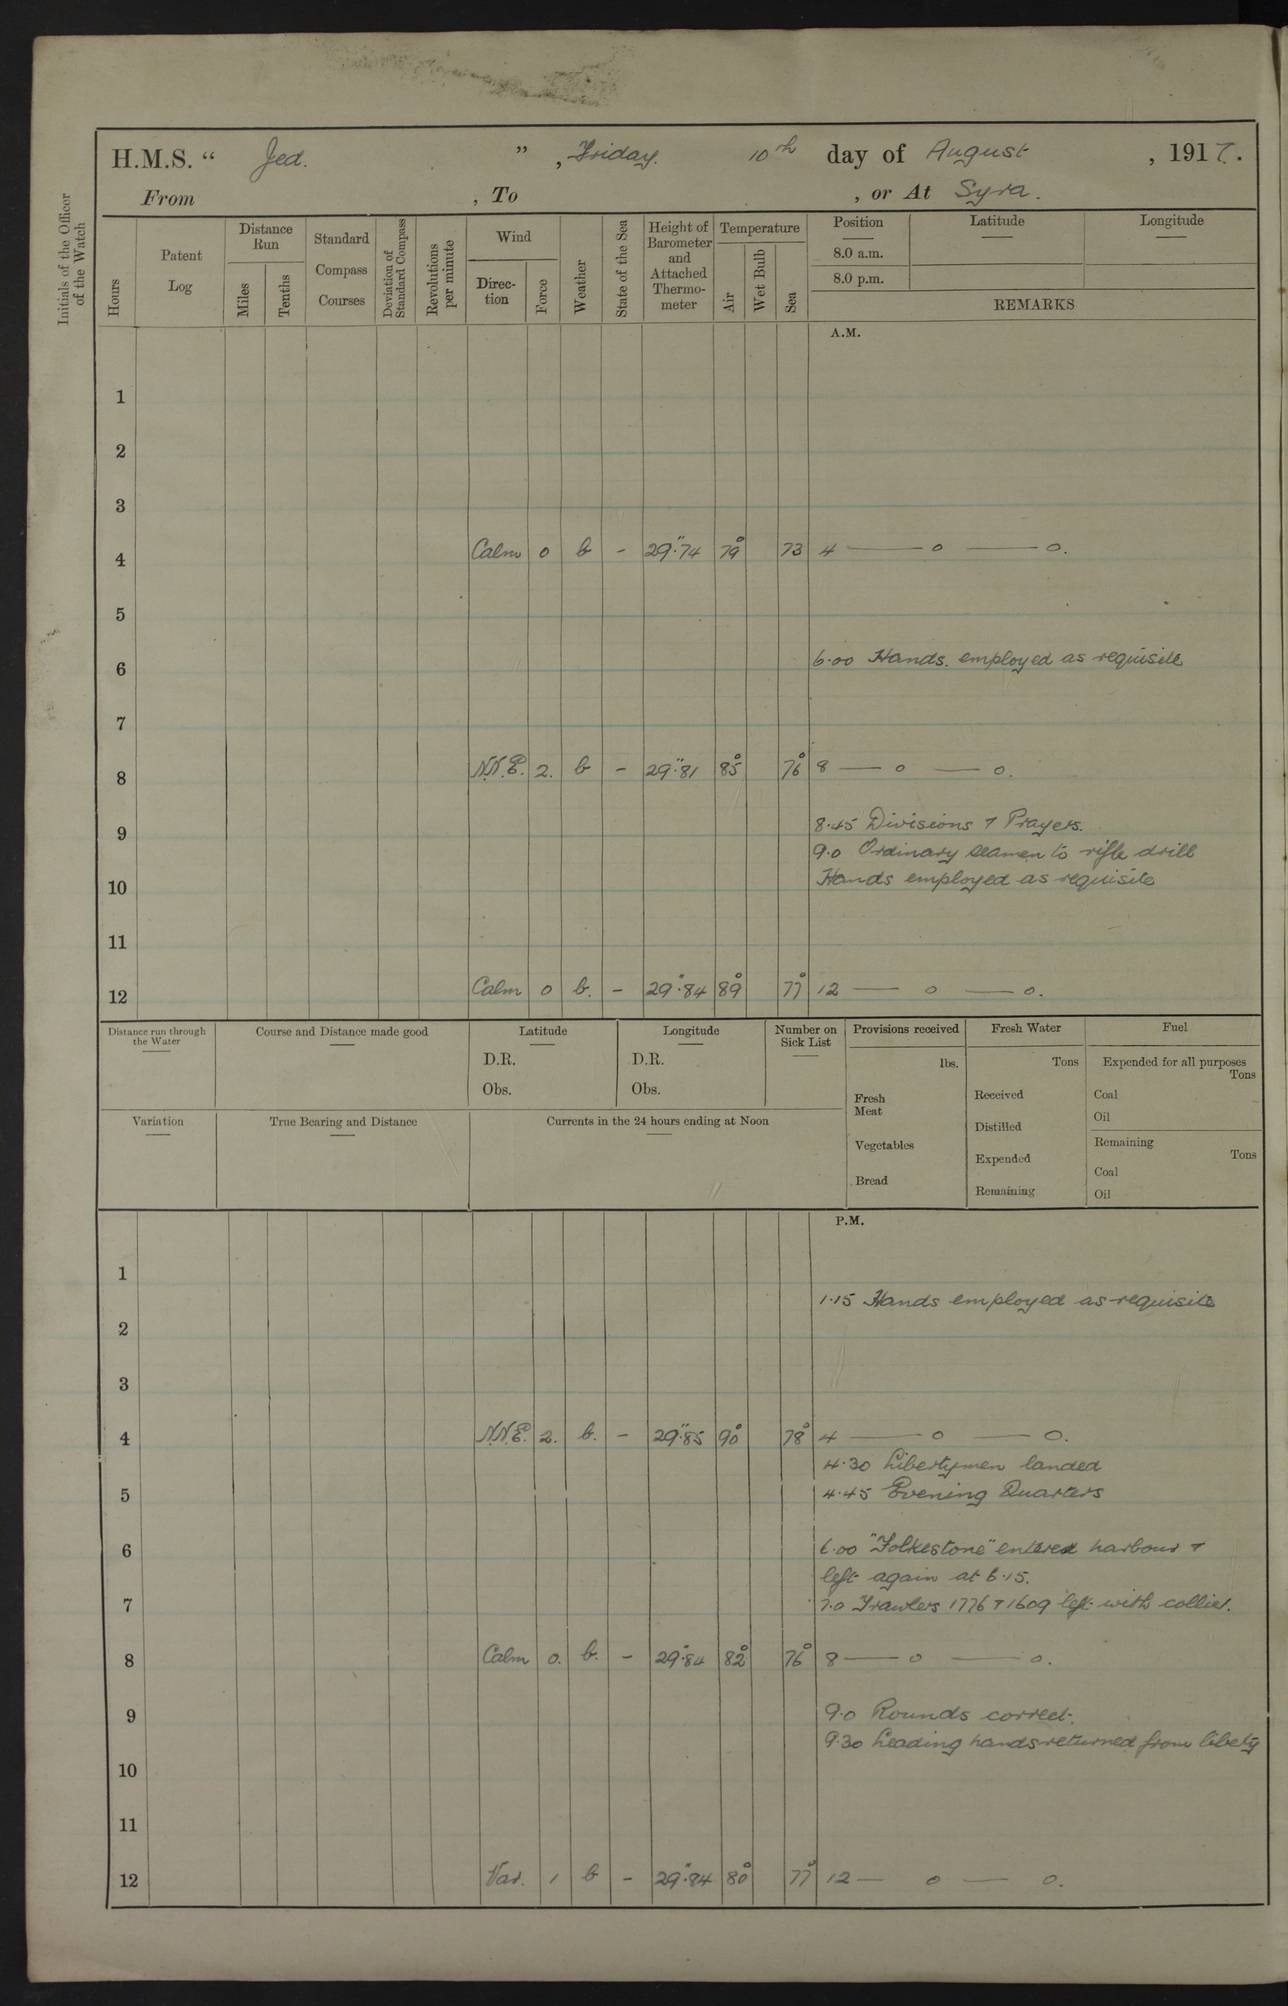 H.M.S. " Jed. " , Friday. 10th day of August , 1917.
From , To , or At Syra.
Initials of the Officer of the Watch
Hours
Patent Log
Distance Run
Miles
Tenths
Standard Compass Courses
Deviation of Standard Compass
Revolutions per minute
Wind
Direction
Force
Weather
State of the Sea
Height of Barometer and Attached Thermometer
Temperature
Air
Wet Bulb
Sea
Position Latitude Longitude
8.0 a.m.
8.0 p.m.
REMARKS
A.M.
1
2
3
4 Calm 0 b - 29".74 79° 73 4 — o — o.
5
6 6.00 Hands employed as requisite
7
8 N.N.E. 2. b - 29".81 85° 76° 8 — o — o.
8.45 Divisions & Prayers.
9
9.0 Ordinary seamen to rifle drill
10 Hands employed as requisite
11
12 Calm 0 b. - 29".84 89° 77° 12 — o — o.
Distance run through the Water
Course and Distance made good
Latitude
D.R.
Obs.
Longitude
D.R.
Obs.
Number on Sick List
Provisions received
lbs.
Fresh Meat
Vegetables
Bread
Fresh Water
Tons
Received
Distilled
Expended
Remaining
Fuel
Expended for all purposes
Tons
Coal
Oil
Remaining
Tons
Coal
Oil
Variation
True Bearing and Distance
Currents in the 24 hours ending at Noon
P.M.
1
1.15 Hands employed as requisite
2
3
4 N.N.E. 2. b. - 29".85 90° 78° 4 — o — o.
4.30 Libertymen landed
5 4.45 Evening Quarters
6 6.00 "Folkestone" entered harbour &
left again at 6.15.
7 7.0 Trawlers 1776 & 1609 left with collier.
8 Calm 0. b. - 29".84 82° 76° 8 — o — o.
9 9.0 Rounds correct.
9.30 Leading hands returned from liberty
10
11
12 Var. 1 b - 29".84 80° 77° 12 — o — o.